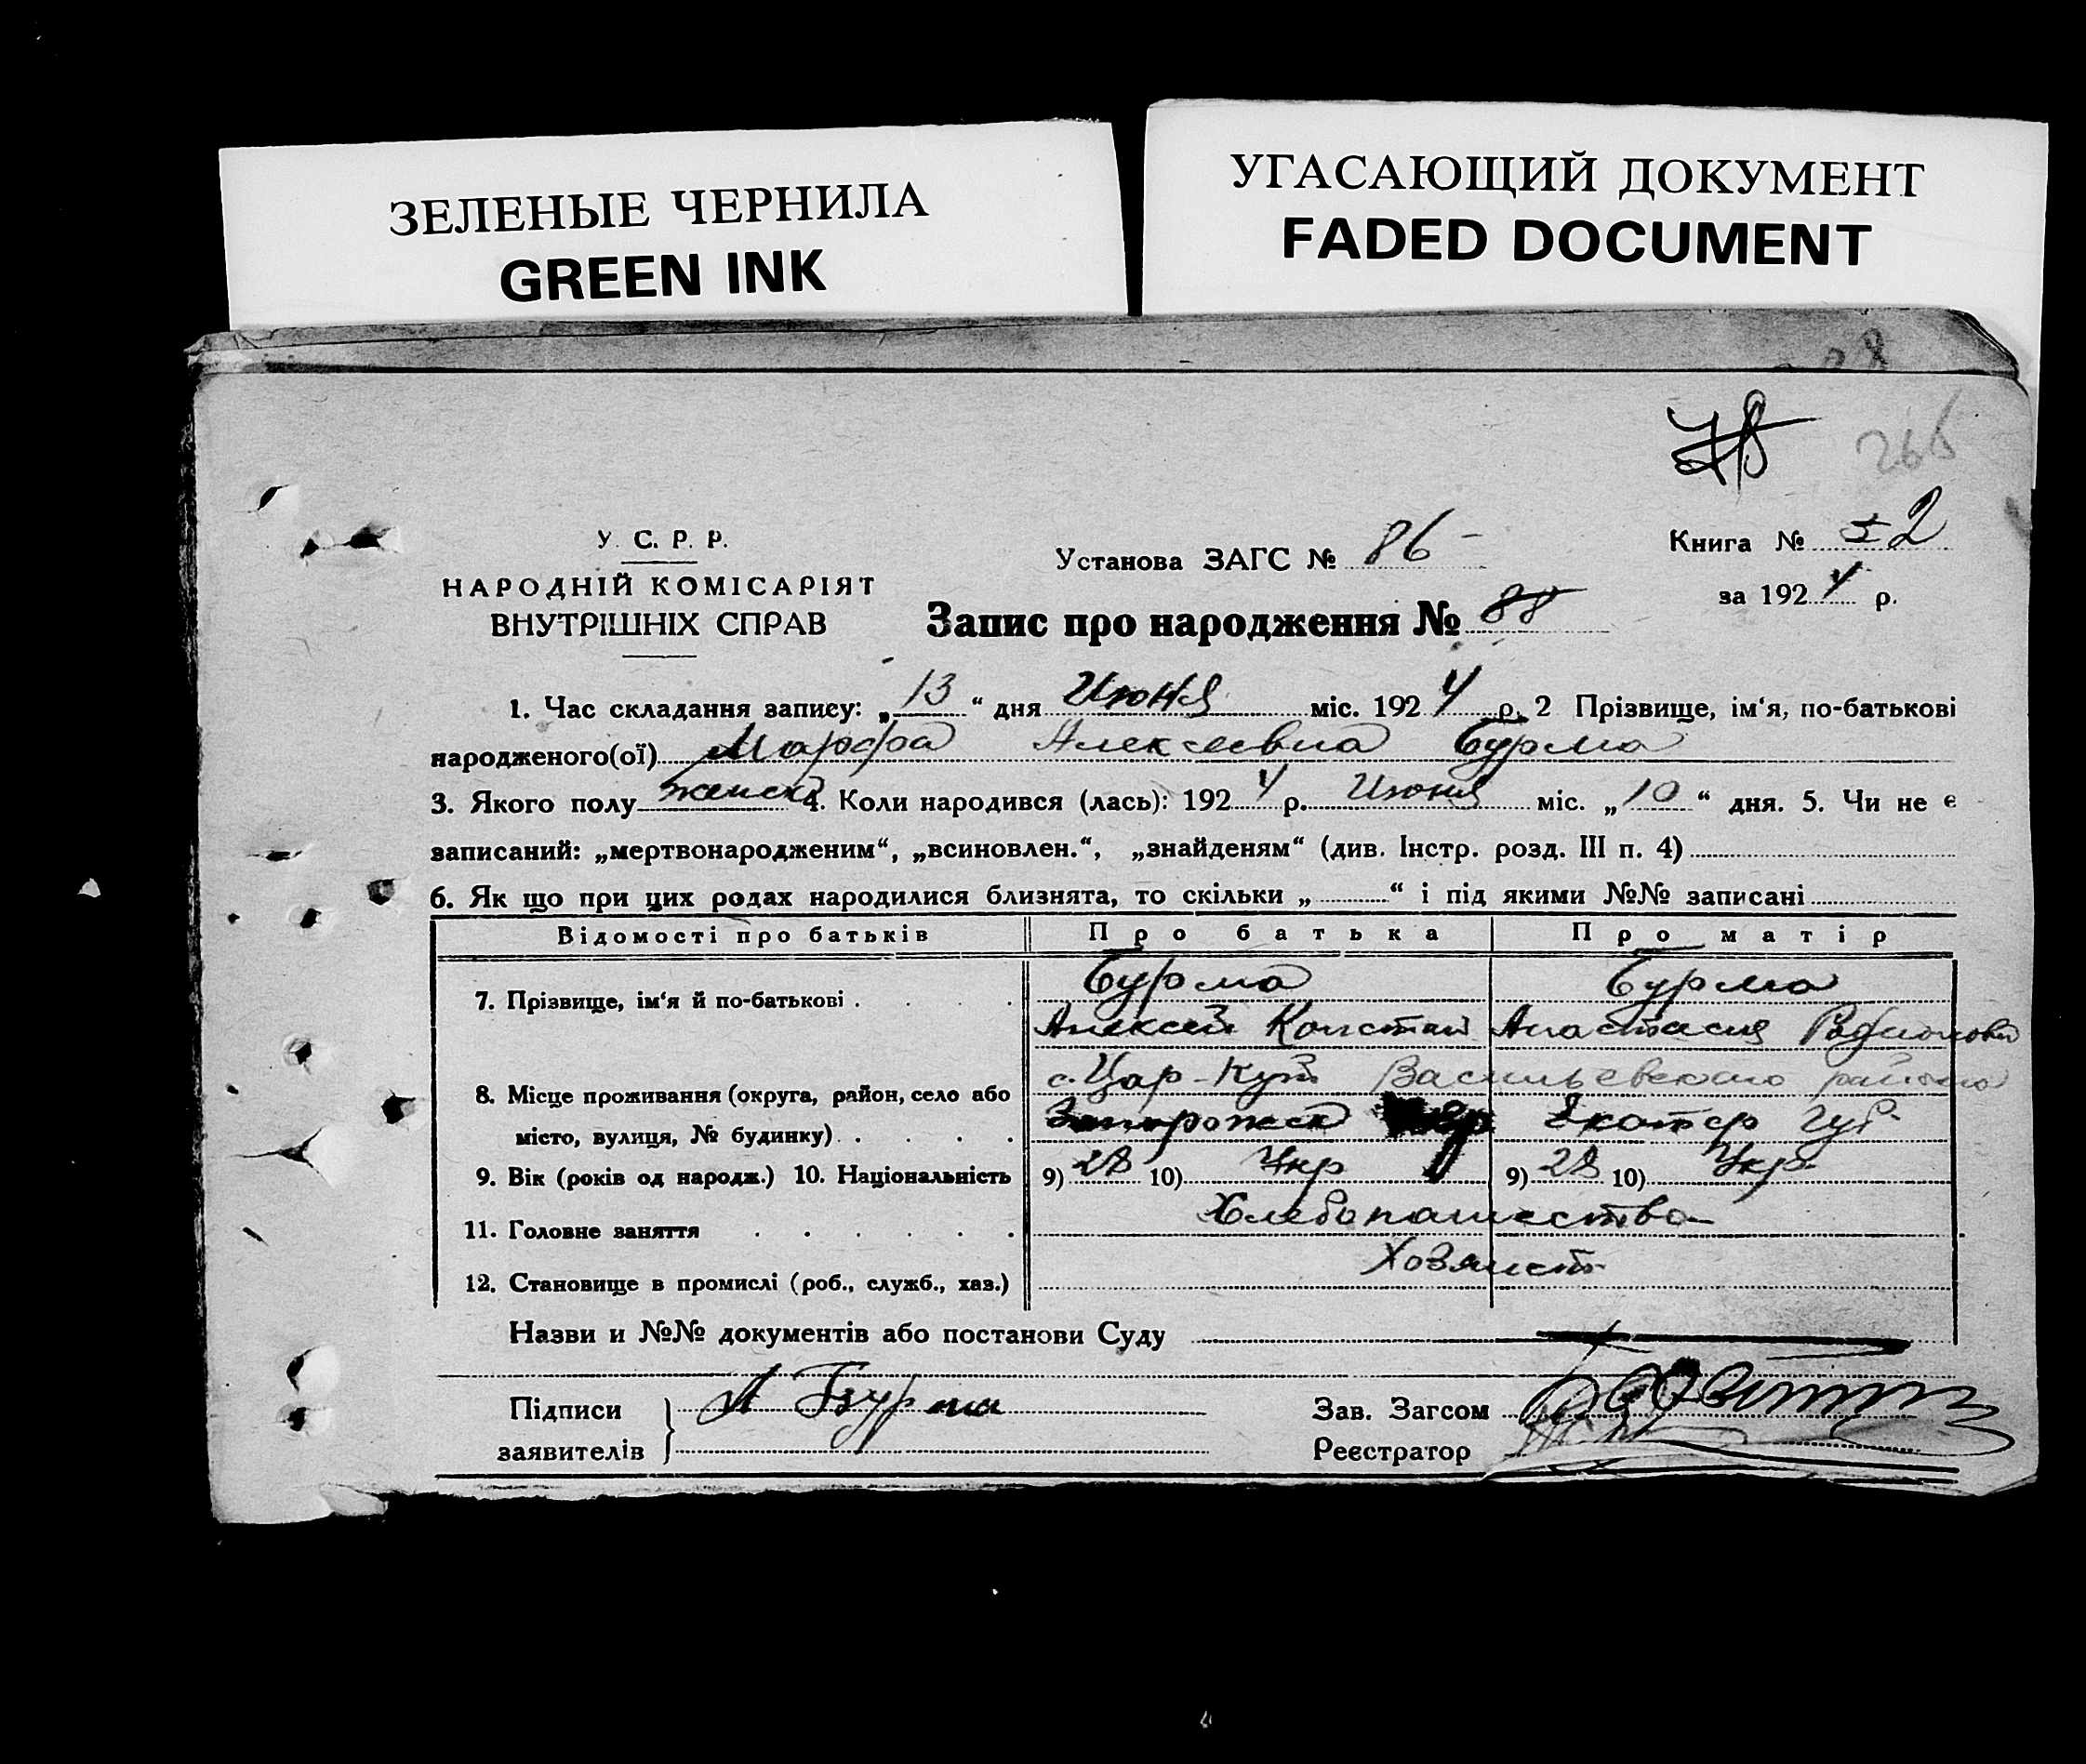 ЗЕЛЕНЫЕ ЧЕРНИЛА
GREEN INK
УГАСАЮЩИЙ ДОКУМЕНТ
FADED DOCUMENT
78
266
У. С. Р. Р.
НАРОДНІЙ КОМІСАРІЯТ
ВНУТРІШНІХ СПРАВ
Установа ЗАГС № 86 -
Книга № 2
за 1924 р.
Запис про народження № 88
1. Час складання запису: „13“ дня Июня міс. 1924 р. 2 Прізвище, ім‘я, по-батькові
народженого(ої) Марфа Алексеевна Бурма
3. Якого полу женск 4. Коли народився (лась): 1924 р. Июня міс. „10“ дня. 5. Чи не є
записаний: „мертвонародженим“, „всиновлен.“, „знайденям“ (див. Інстр. розд. III п. 4)
6. Як що при цих родах народилися близнята, то скільки „ “ і під якими №№ записані
Відомості про батьків Про батька Про матір
7. Прізвище, ім‘я й по-батькові . . . . Бурма Бурма
Алексей Констан Анастасия Родионовн
8. Місце проживання (округа, район, село або с. Цар-Кут Васильевского района
місто, вулиця, № будинку) . . . . Запорожск Екатер губ
9. Вік (років од народж.) 10. Національність 9) 28 10) Укр 9) 28 10) Укр
11. Головне заняття . . . . . . Хлебопашество
12. Становище в промислі (роб., служб., хаз.) Хозяист
Назви и №№ документів або постанови Суду
Підписи
заявителів
А Бурма
Зав. Загсом
Реєстратор